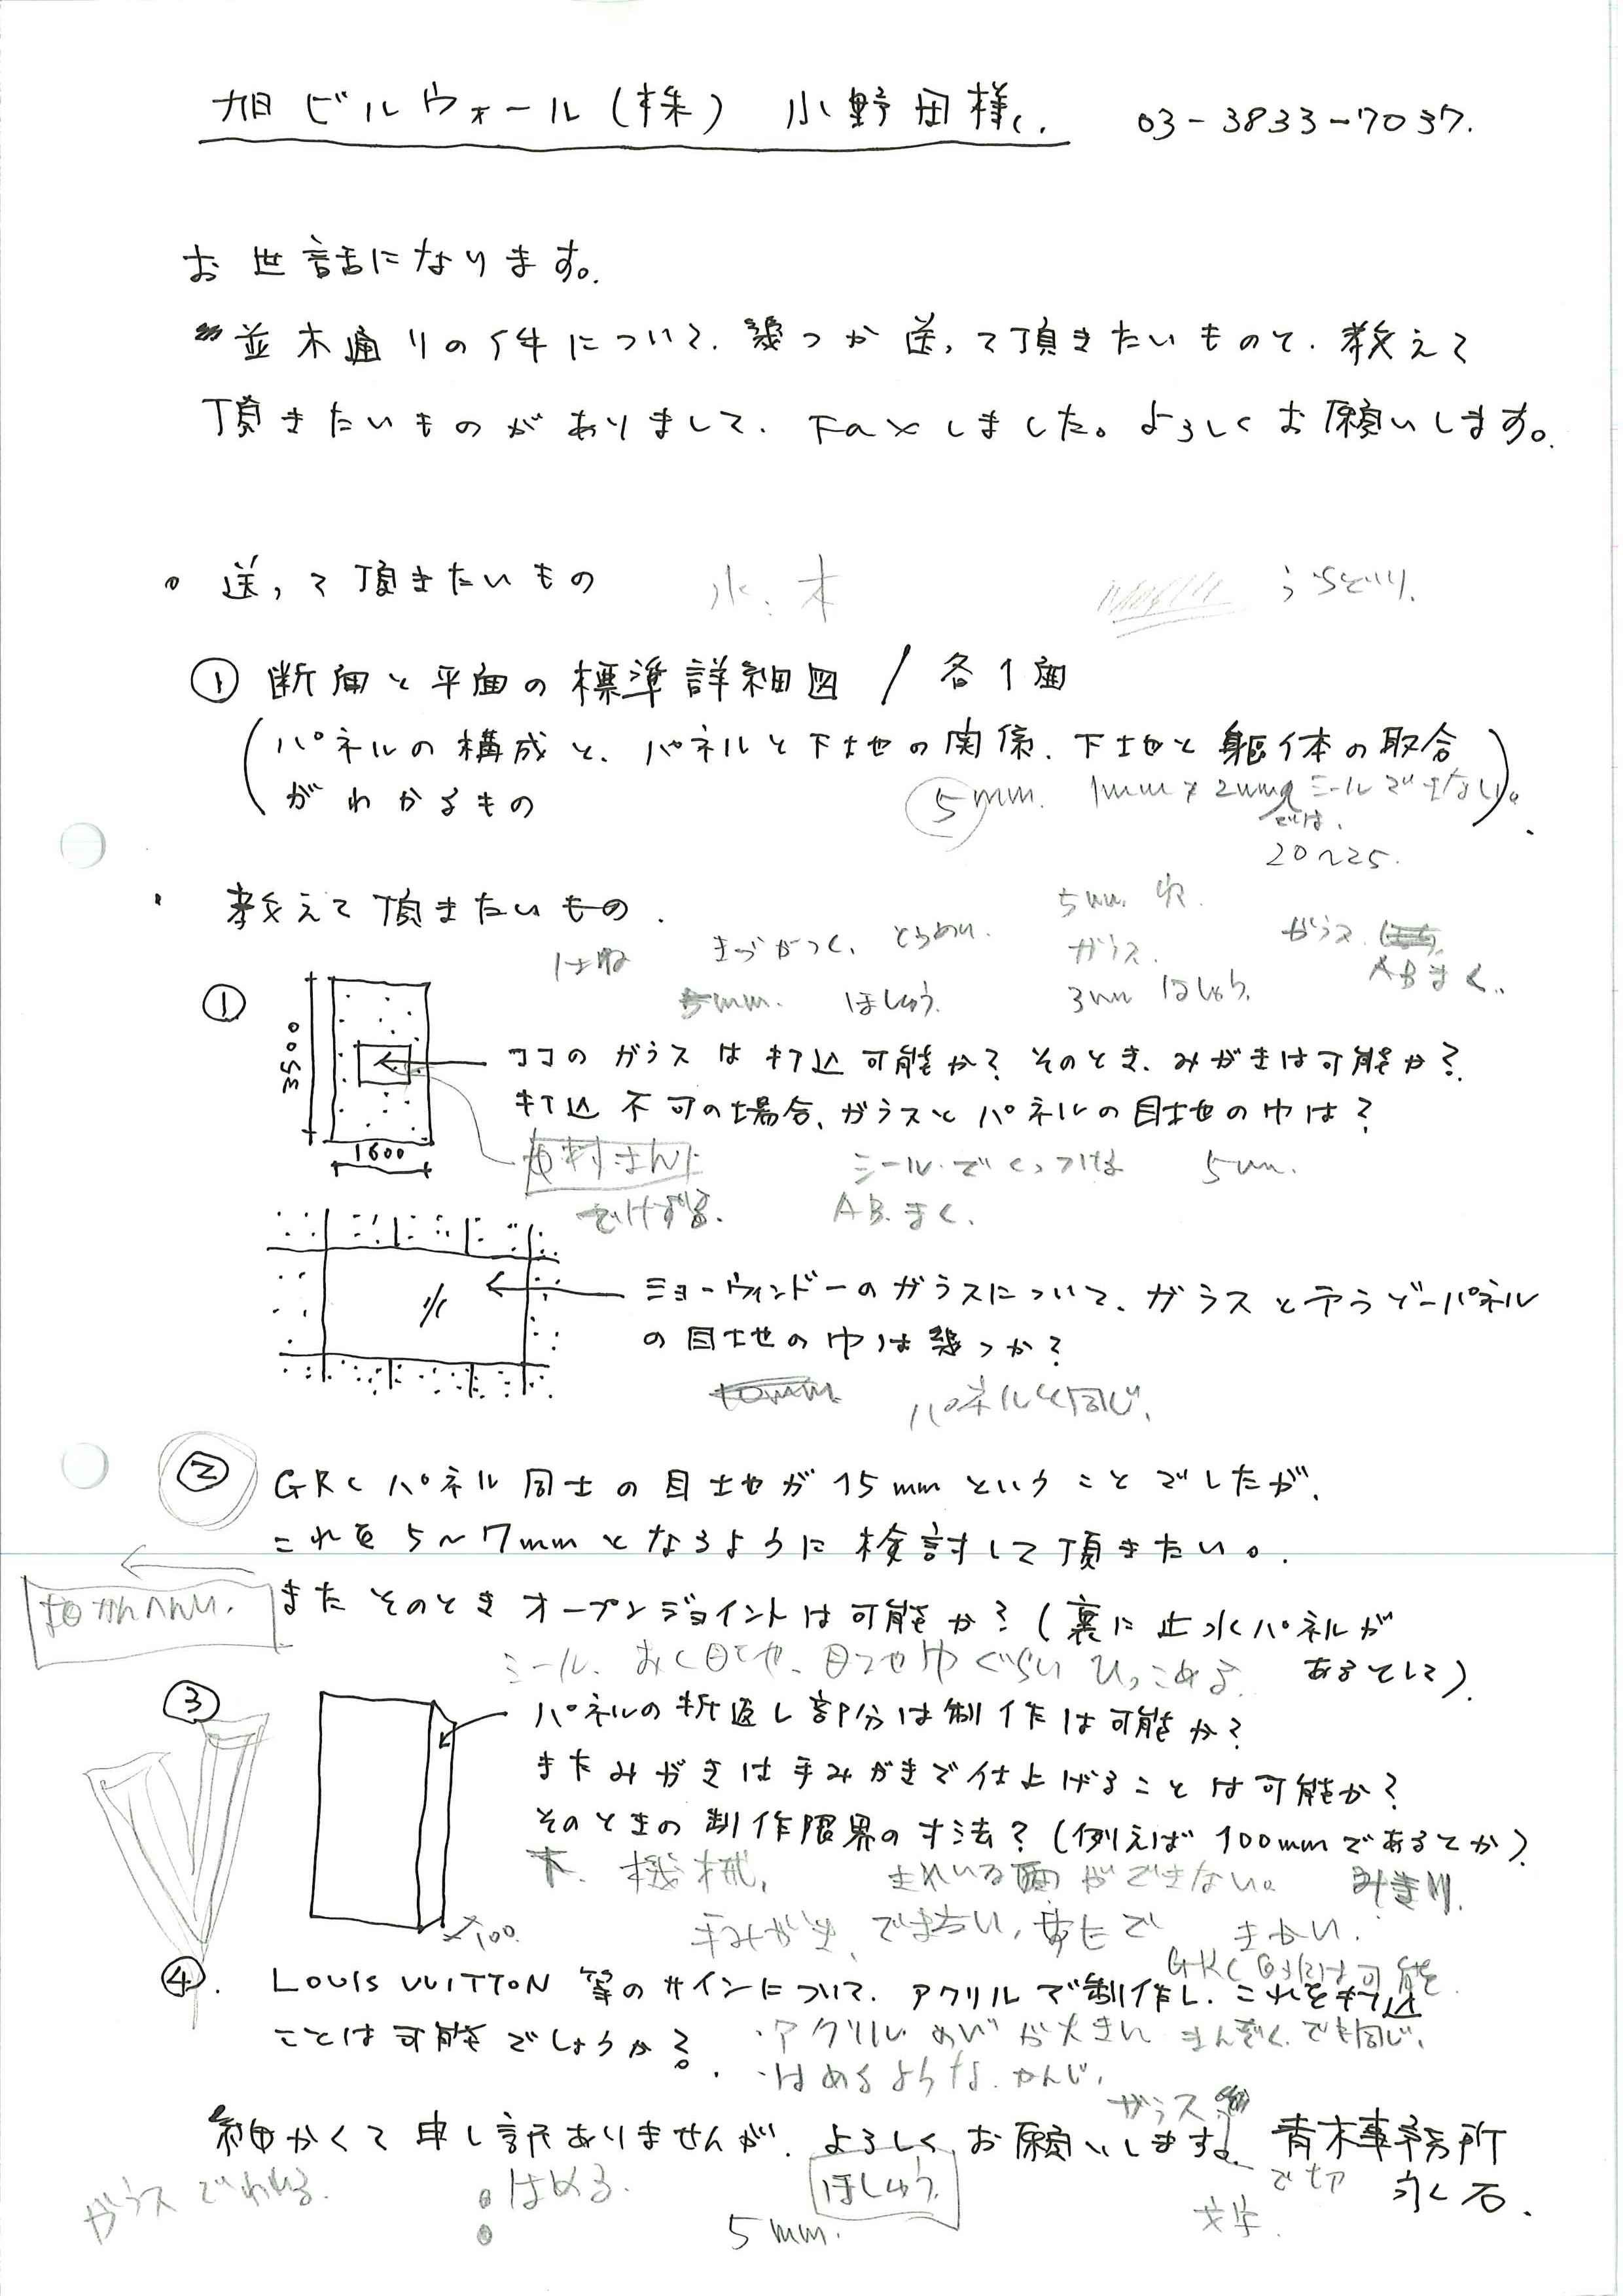 旭ビルウォール(株) 小野田様. 03-3833-7037.
お世話になります。
並木通りの件について、幾つか送って頂きたいものと、教えて
頂きたいものがありまして、Faxしました。よろしくお願いします。
・送って頂きたいもの 水. 木
① 断面と平面の標準詳細図 / 各1面
(パネルの構成と、パネルと下地の関係、下地と躯体の取合
がわかるもの)
5mm. 1mm 2mm シールで
では.
20〜25.
・教えて頂きたいもの.
5mm
きづがつく、 ガラス. ガラス.
ABまく.
mm. ほしゅう. 3mm ほしゅう.
①
3500
1600
ココのガラスは打込可能か? そのとき、みがきは可能か?
打込不可の場合、ガラスとパネルの目地の巾は?
シールでくっつける 5mm.
けずる. AB.まく.
ショーウィンドーのガラスについて、ガラスとテラゾーパネル
の目地の巾は幾つか?
10mm パネルと同じ.
② GRCパネル同士の目地が15mmということでしたが、
これを5〜7mmとなるように検討して頂きたい。
またそのときオープンジョイントは可能か?(裏に止水パネルが
あるとして)
シール、 ぐらい ひっこめる.
③ パネルの折返し部分は制作は可能か?
またみがきは手みがきで仕上げることは可能か?
そのときの制作限界の寸法?(例えば100mmであるとか)
100
機械. きれいな面ができない。
手みがき、できない、 きかい.
GRC 可能
④. LOUIS VUITTON 等のサインについて、アクリルで制作し、これを打込
ことは可能でしょうか?
・アクリル が大きい きんぞくでも同じ.
・はめるような かんじ.
ガラス
細かくて申し訳ありませんが、よろしくお願いします。 青木事務所
永石.
ガラスでわれる. はめる. ほしゅう. で切
文字.
5mm.